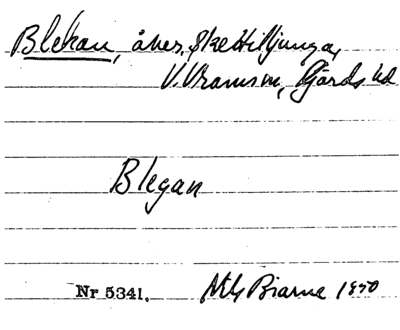 Blekan, åker, Skettiljunga,
V. Vram sn, Gärds hd
Blegan
Nr 5341. Bjarne 1850